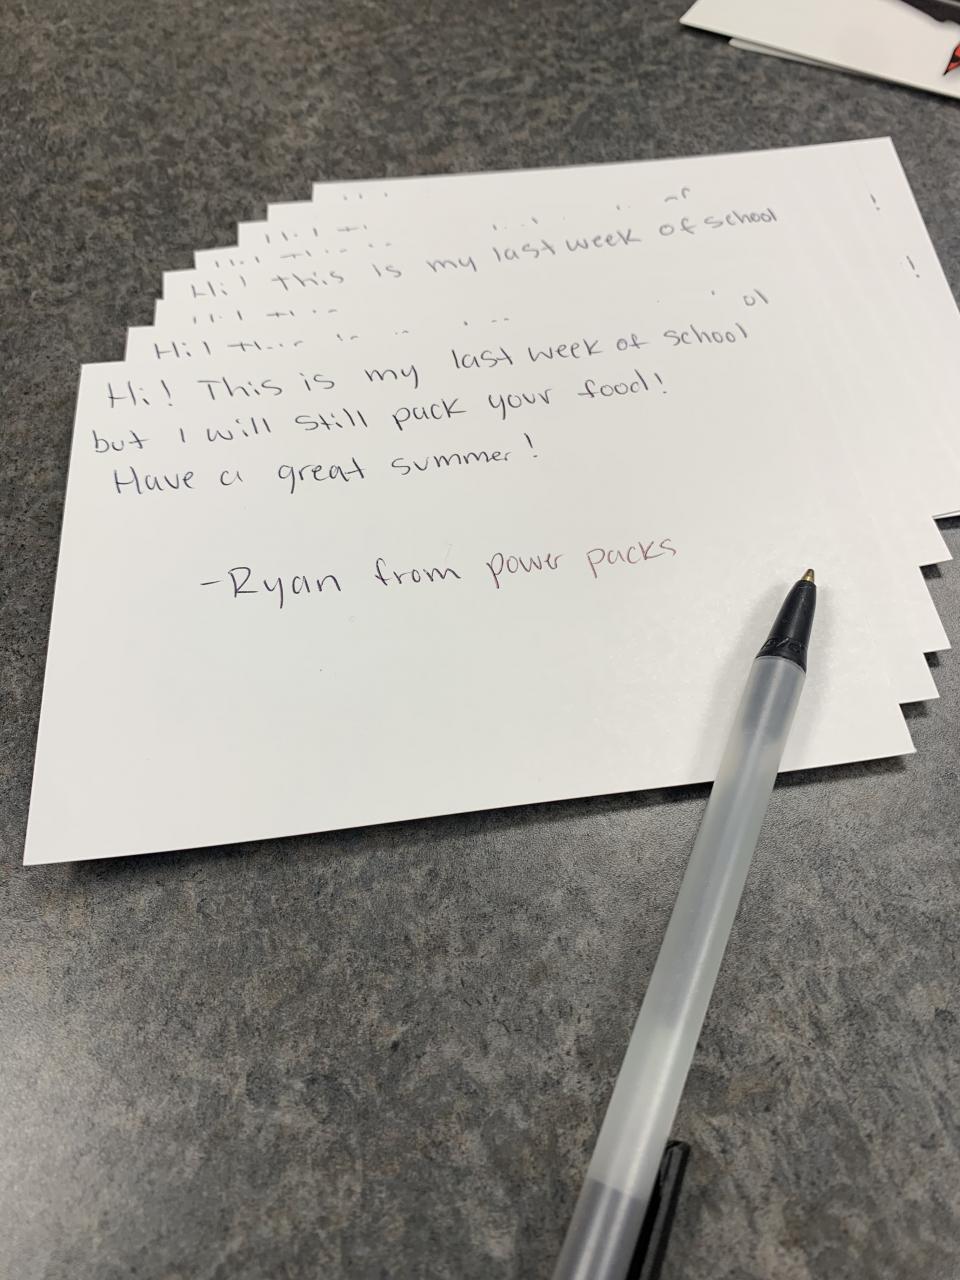 Hi! This is my last week of school
Hi! This is my last week of school
but I will still pack your food!
Have a great summer!
-Ryan from power packs